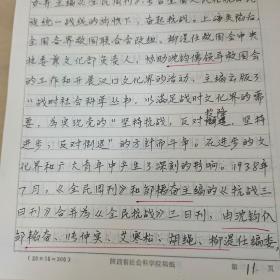 族统一战线的旗帜下，奋起抗战，上海失陷后
全国各界救国联合会改组，柳湜任救国会中央
执委兼文化部负责人，协助沈钧儒领导救国会
的工作和开展汉口文化界的活动。主编出版了
《战时社会科学丛书，以满足战时文化界的需
要，为实现党的"坚持抗战，反对投降，坚持
进步，反对倒退"的方针而斗争，在进步的文
化界和广大青年中产生了深刻的影响。1938年
7月，《全民周刊》和邹韬奋主编的《抗战三
日刊》合并为《全民抗战》三日刊，由沈钧儒
邹韬奋、张仲实、艾寒松、胡绳、柳湜任编委，
(20×15=300)
陕西省社会科学院稿纸
第11页